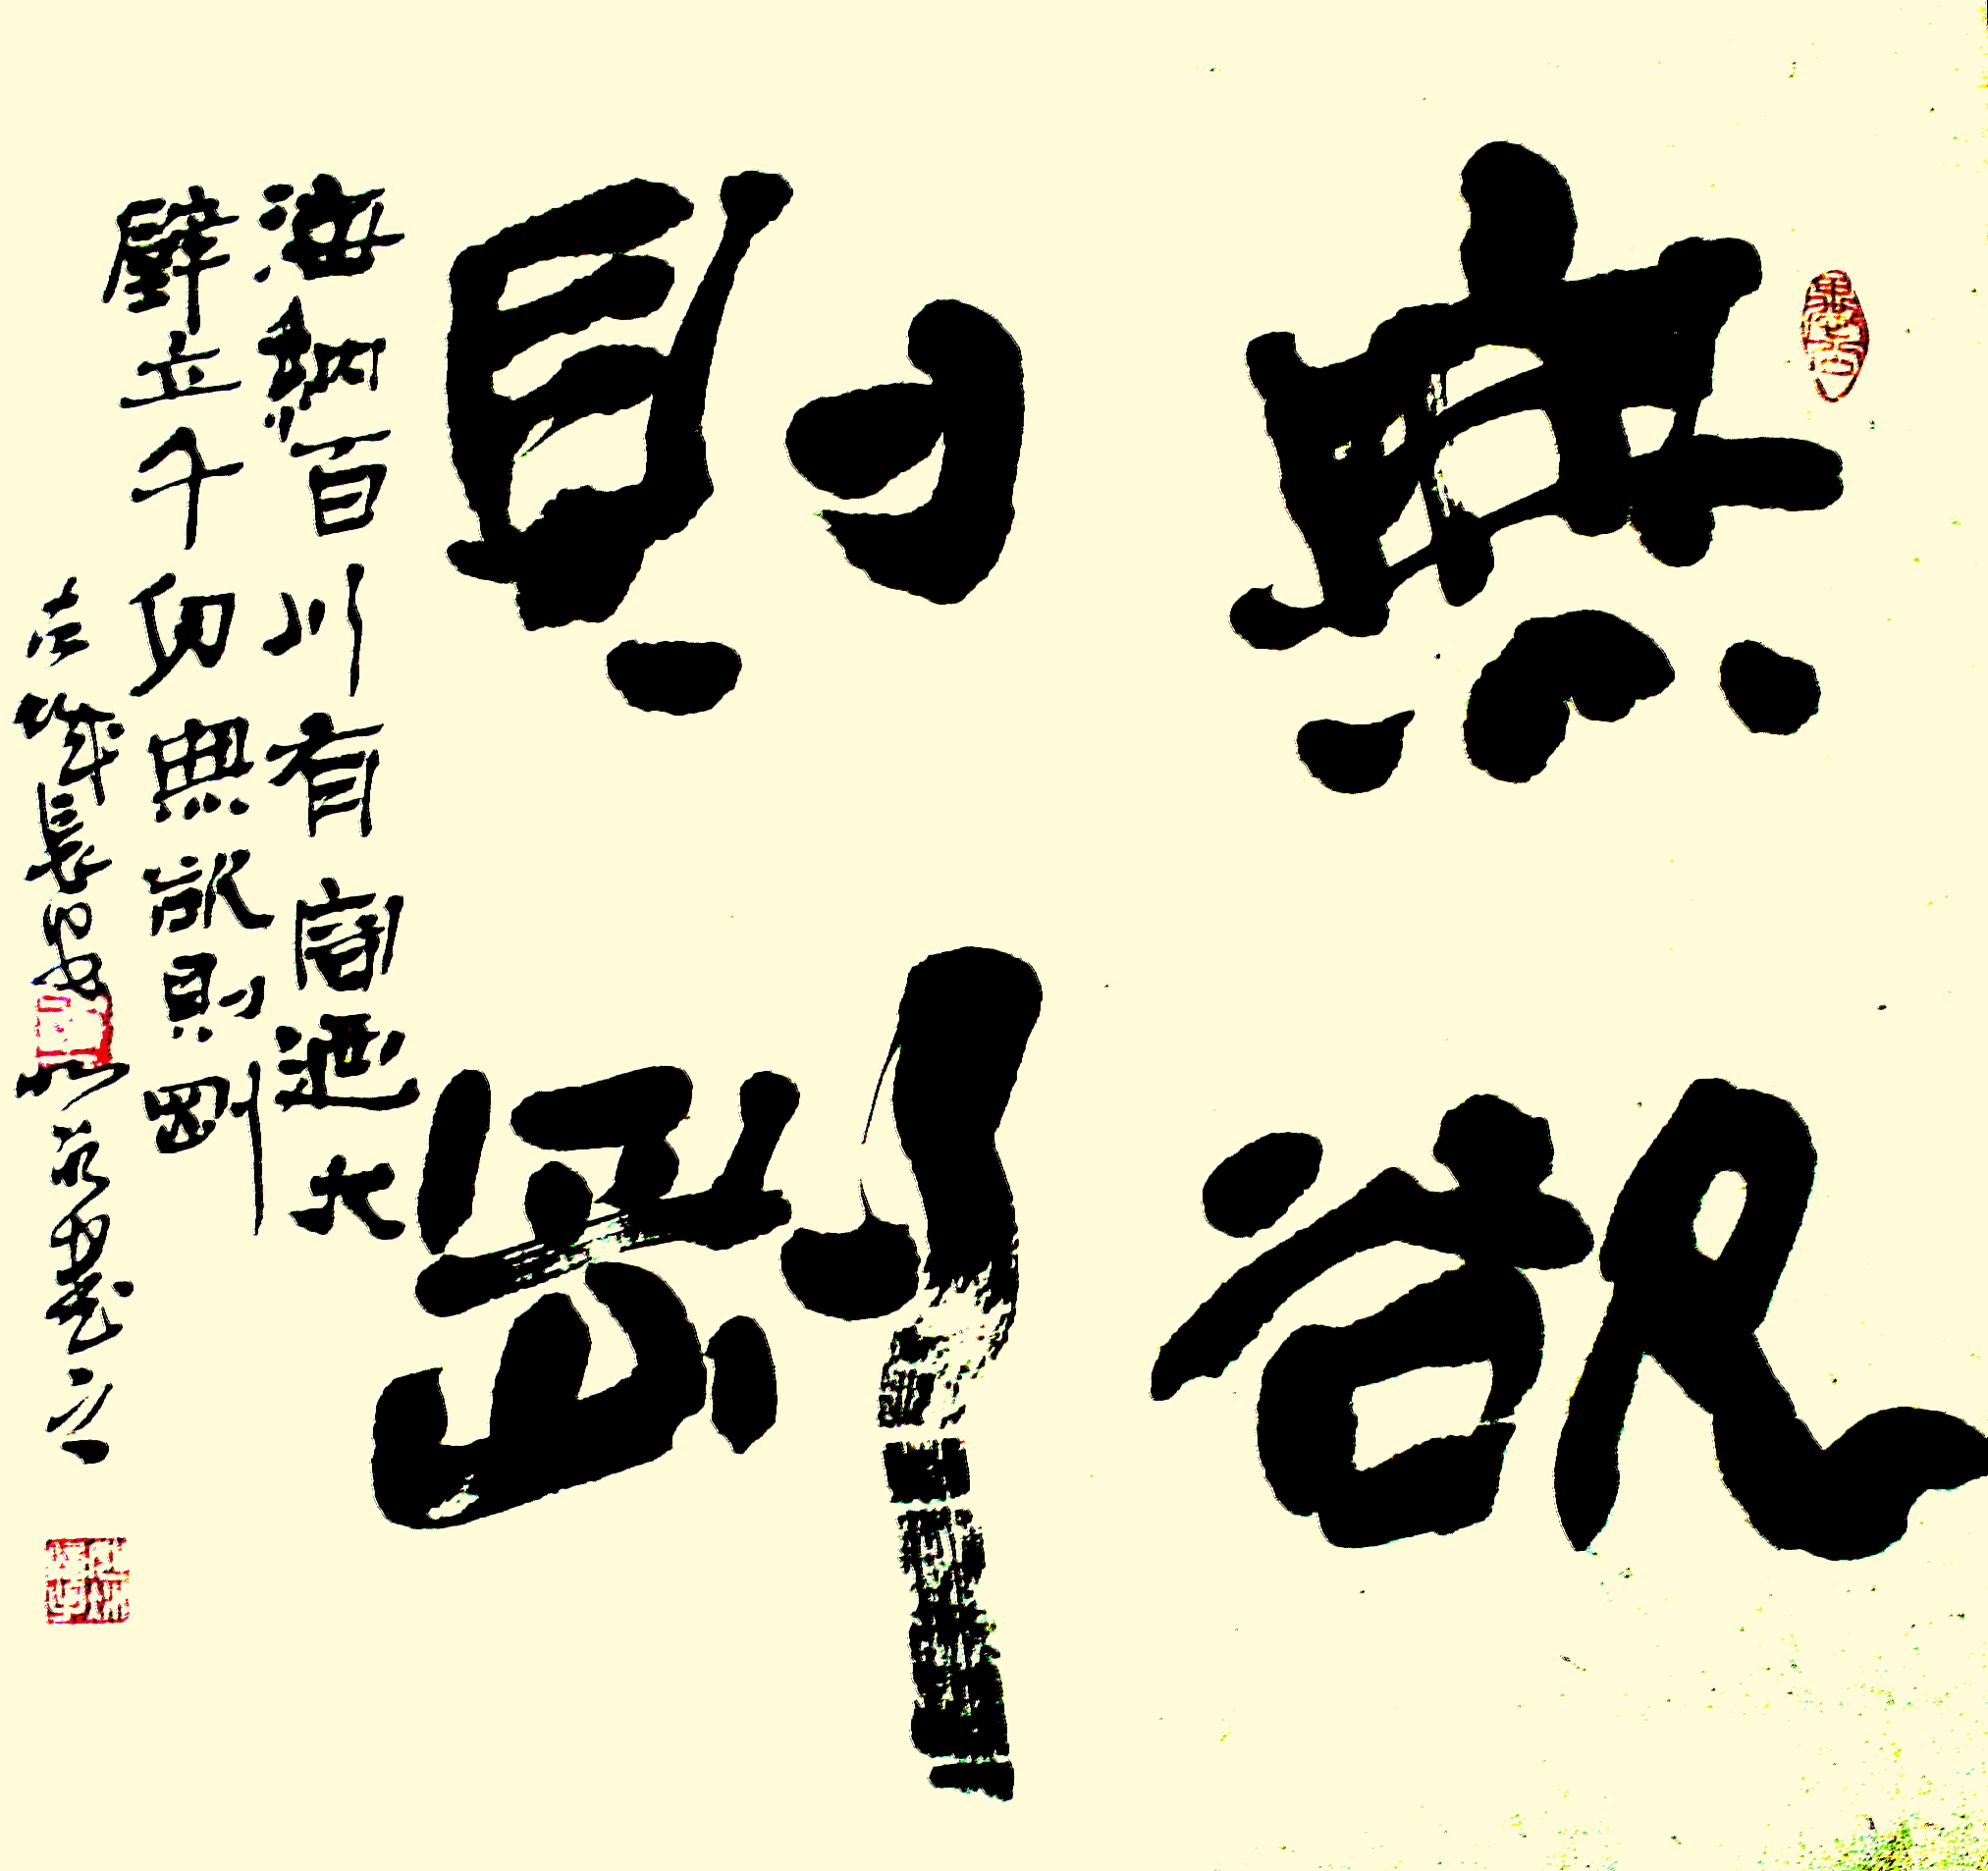 無欲
則剛
海納百川有容迺大
壁立千仞無欲則剛